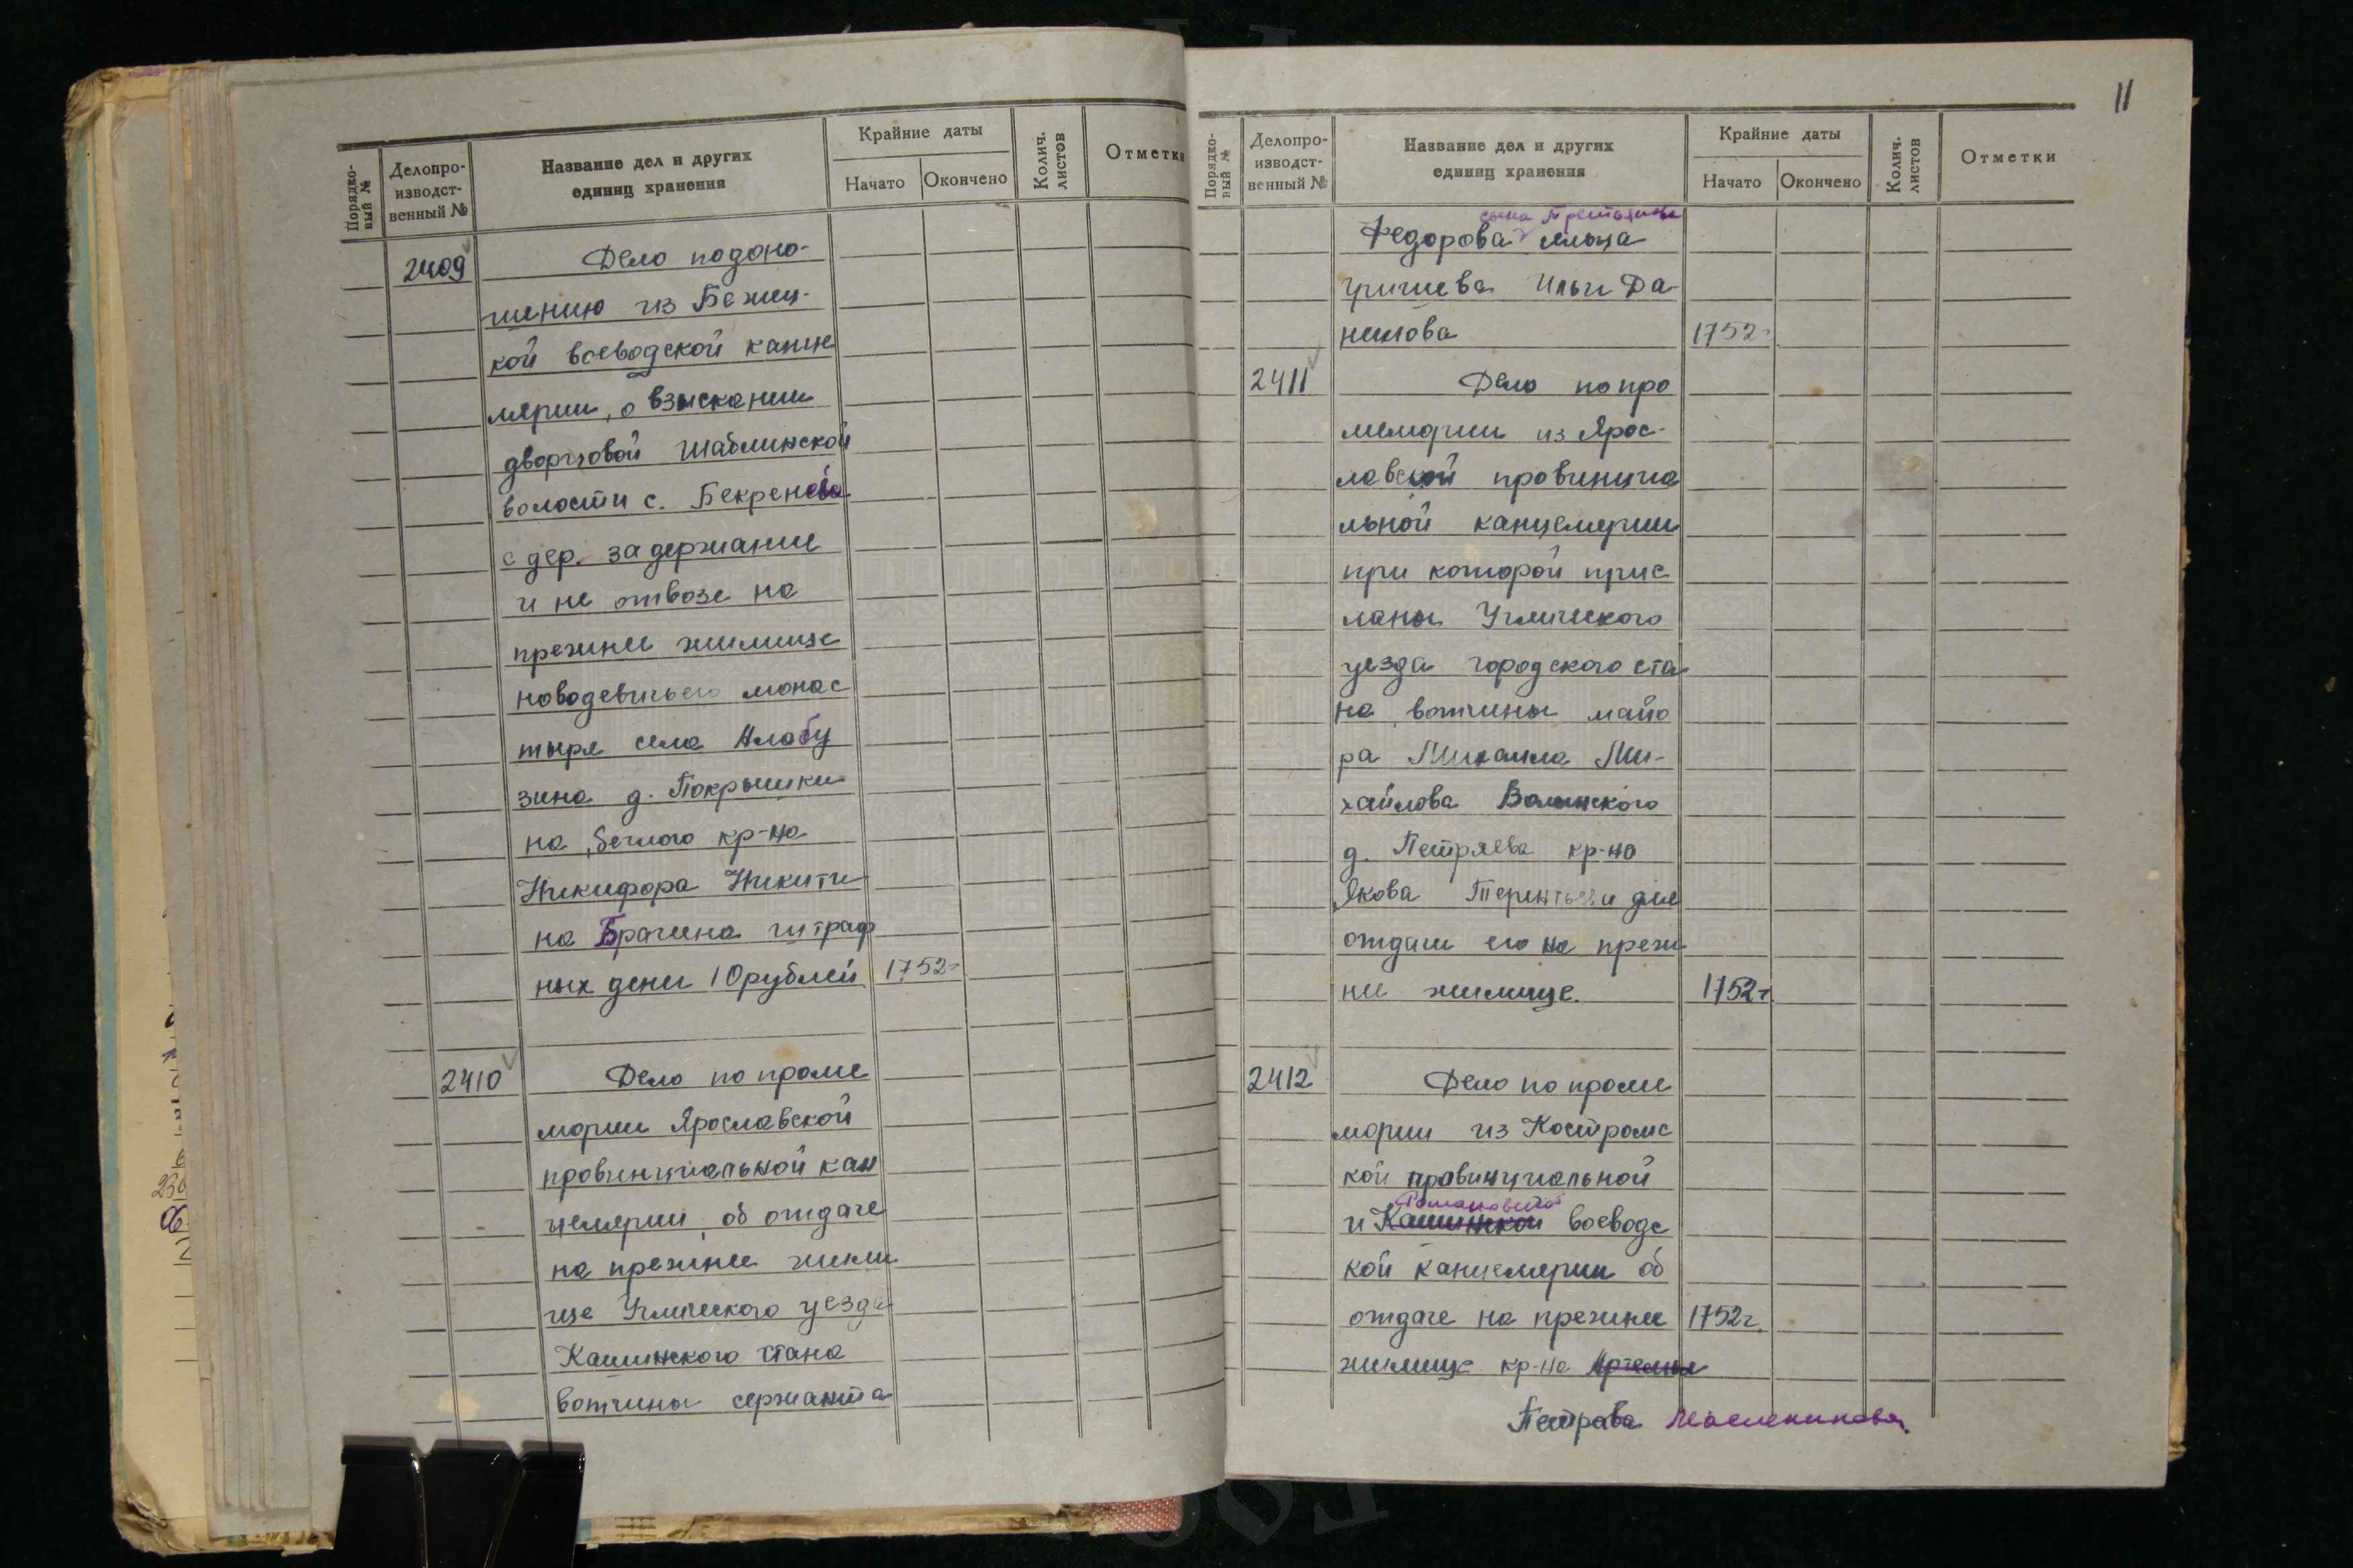 Порядко-
вый №
Делопро-
изводст-
венный №
Название дел и других
единиц хранения
Крайние даты
Начато
Окончено
Колич.
листов
Отметки
2409
Дело подоно-
шению из Бежец-
кой воеводской канце
лярии, о взыскании
дворцовой Шаблинской
волости с. Бекренева
с дер. за держание
и не отвозе на
прежнее жилище
новодевичьего монас
тыря села Алабу
зина д. Покрышки
на, беглого кр-на
Никифора Никити
на Брагина штраф
ных денег 10 рублей
1752г
2410
Дело по проме
мории Ярославской
провинциальной кан
целярии, об отдаче
на прежнее жили
ще Угличского уезда
Кашинского стана
вотчины сержанта
11
Порядко-
вый №
Делопро-
изводст-
венный №
Название дел и других
единиц хранения
Крайние даты
Начато
Окончено
Колич.
листов
Отметки
сына Третьякова
Федорова
Ильи Да
нилова
1752г
2411
Дело по про
мемории из Ярос-
лавской провинциа
льной канцелярии
при которой прис
ланы Угличского
уезда городского ста
на вотчины майо
ра Михаила Ми-
хайлова Волынского
д. Петряева кр-на
Якова Терентьева для
отдачи его на преж
нее жилище.
1752г
2412
Дело по проме
мории из Костромс
кой провинциальной
Романовской
и Кашинской воеводс
кой канцелярии об
отдаче на прежнее
1752г.
жилище кр-на Артемья
Петрова Масленикова